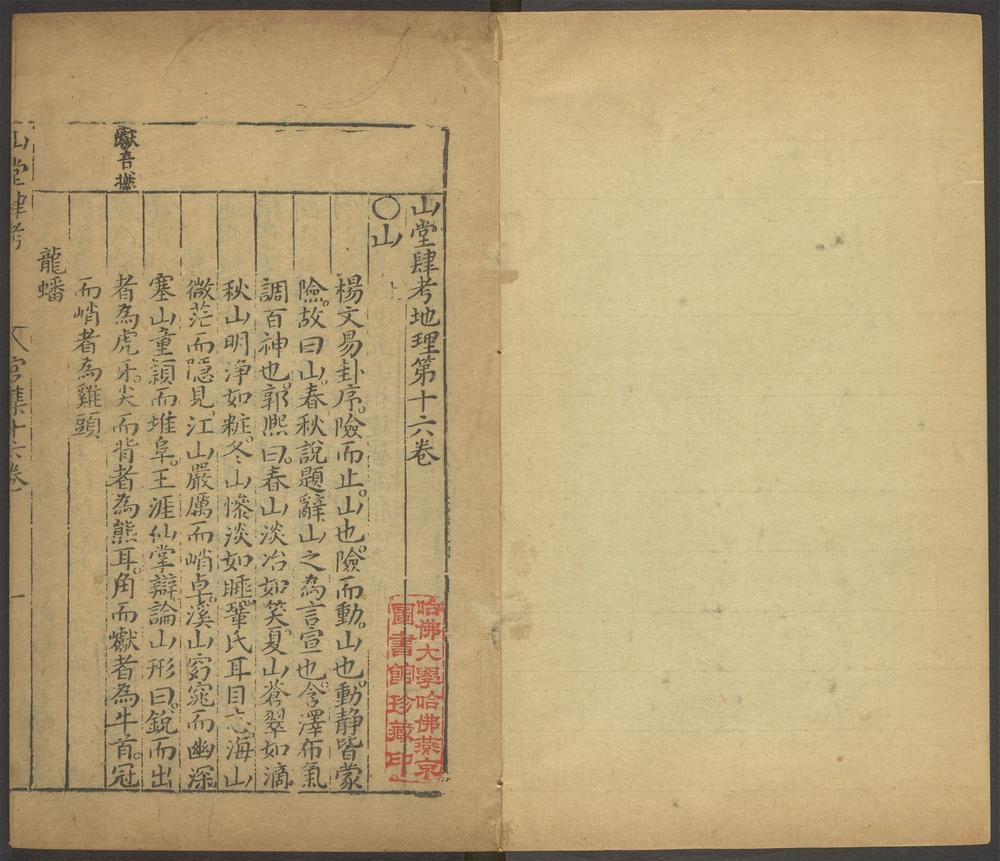 山堂肆考地理第十六卷
○山上
楊文易卦序。險而止。山也。險而動。山也。動静皆蒙
險。故曰山。春秋說題辭山之為言宣也。含澤布氣
調百神也。郭熙曰。春山淡冶如笑。夏山蒼翠如滴。
秋山明淨如粧。冬山慘淡如睡。鞏氏耳目志。海山
微茫而隱見。江山嚴厲而峭卓。溪山窈窕而幽深
塞山童頳而堆阜。王涯仙掌辯論山形曰。銳而出
者為虎牙。尖而背者為熊耳。角而巘者為牛首。冠
而峭者為雞頭
龍蟠
山堂肆考
宮集十六卷
一
巘音撚
哈佛大學哈佛燕京
圖書館珍藏印